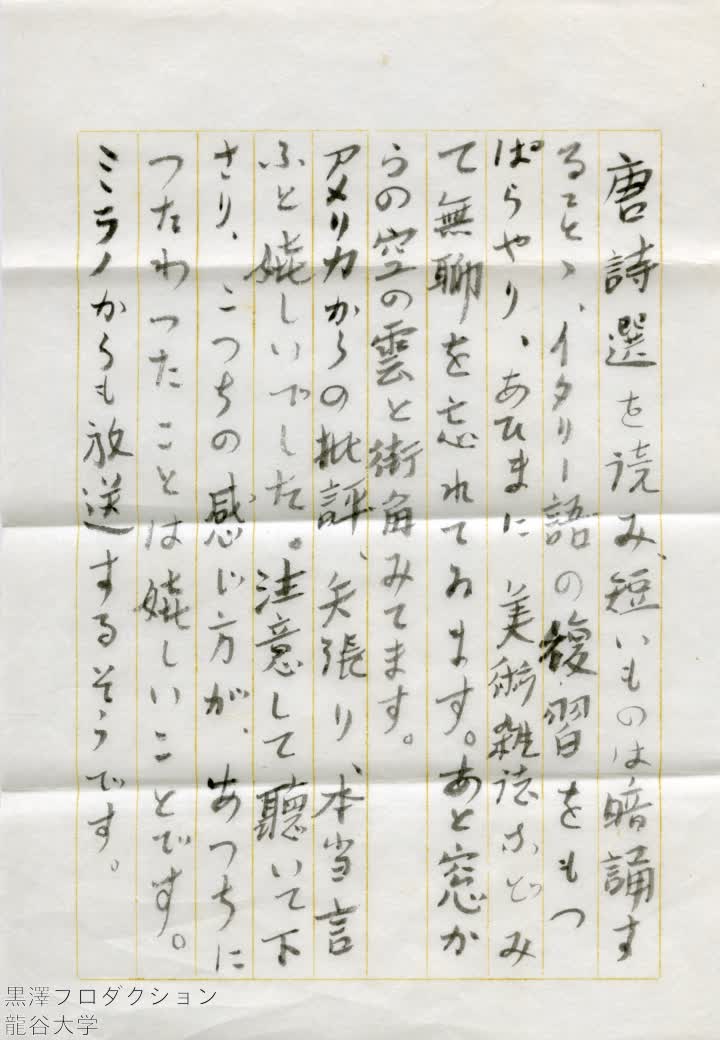 唐詩選を読み、短いものは暗誦す
ること、、イタリー語の復習をもつ
ぱらやり、あひまに美術雑誌などみ
て無聊を忘れてゐます。あと窓か
らの空の雲と街角みてます。
アメリカからの批評、矢張り、本当言
ふと嬉しいでした。注意して聴いて下
さり、こつちの感じ方が、あつちに
つたわつたことは嬉しいことです。
ミラノからも放送するそうです。
黒澤プロダクション
龍谷大学